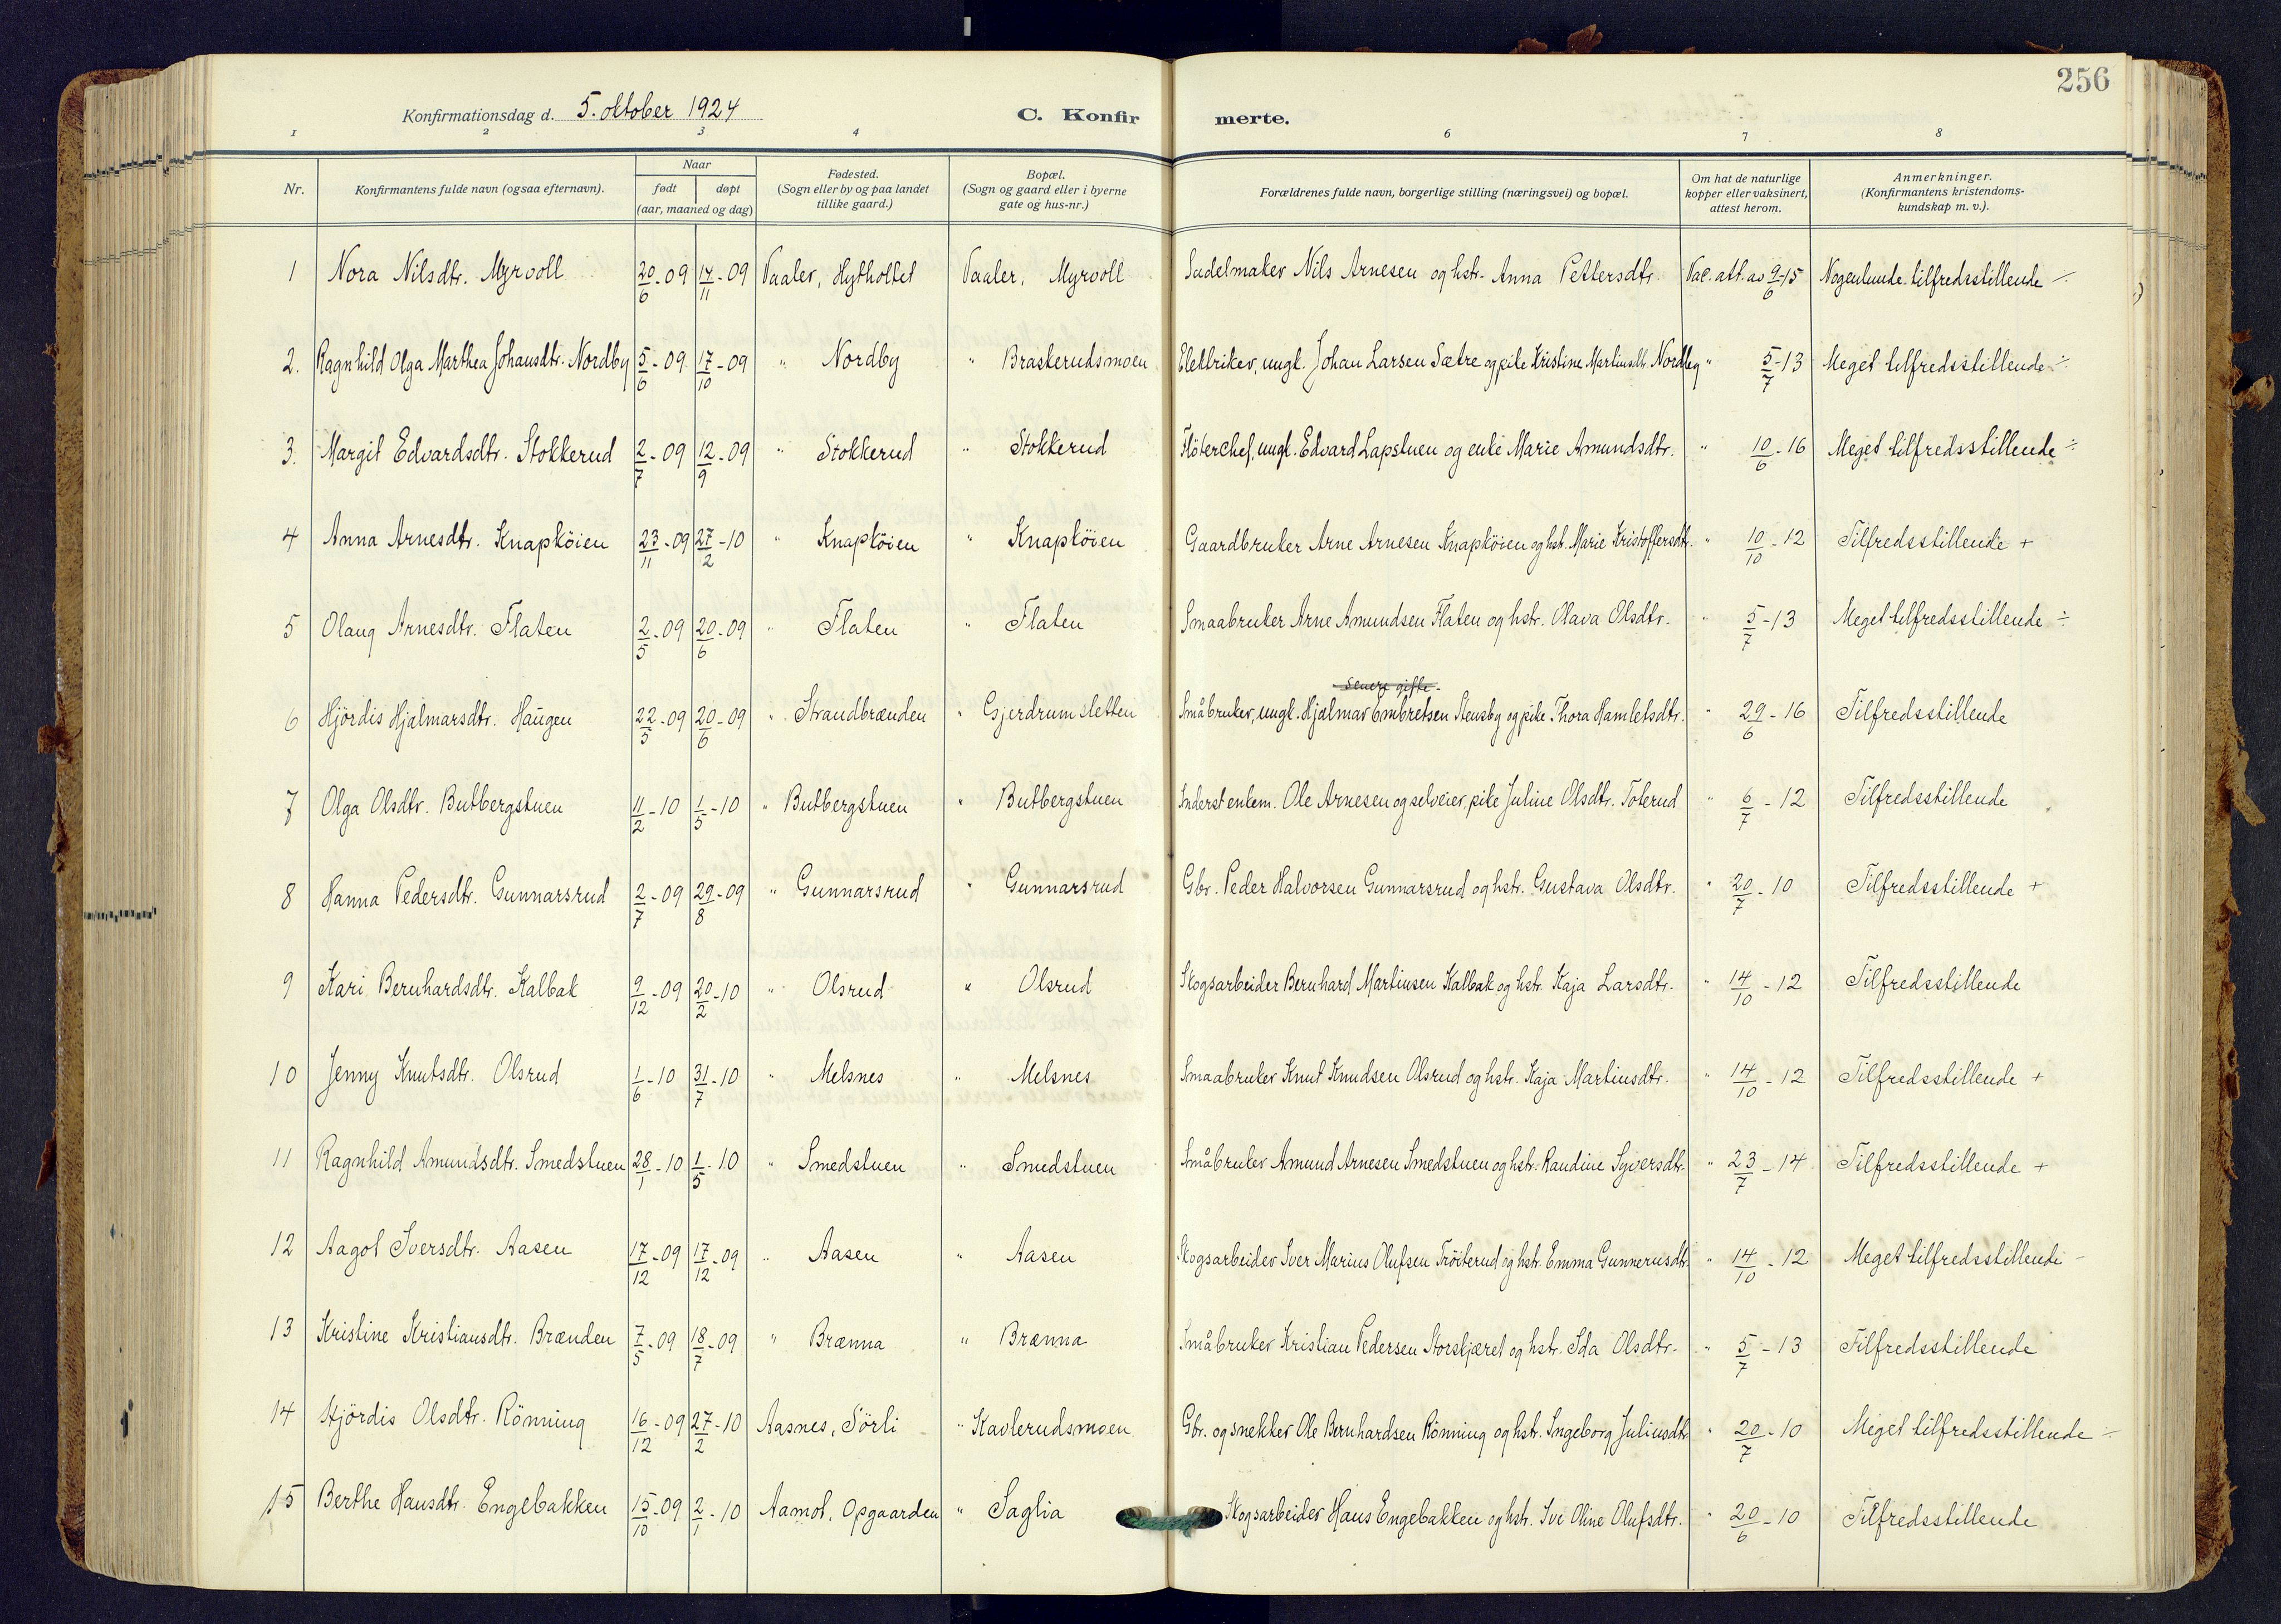 256
Konfirmationsdag d. 5. oktober 1924
C. Konfir merte.
1 2 3 4 6 7 8
Nr. Konfirmantens fulde navn (ogsaa efternavn). Naar født døpt (aar, maaned og dag) Fødested. (Sogn eller by og paa landet tillike gaard.) Bopæl. (Sogn og gaard eller i byerne gate og hus-nr.) Forældrenes fulde navn, borgerlige stilling (næringsvei) og bopæl. Om hat de naturlige kopper eller vaksinert, attest herom. Anmerkninger. (Konfirmantens kristendoms-kundskap m. v.).
1 Nora Nilsdtr. Myrvoll 20/6-09 14/11-09 Vaaler, Hytholtet Vaaler, Myrvoll Sadelmaker Nils Arnesen og hstr. Anna Pettersdtr. Vac. att. av 9/6-15 Nogenlunde tilfredsstillende ÷
2. Ragnhild Olga Marthea Johansdtr. Nordby 5/6-09 17/10-09 " Nordby " Braskerudsmoen Elektriker, ungk. Johan Larsen Sætre og pike Kristine Martinsdtr. Nordby " 5/7-13 Meget tilfredsstillende ÷
3. Margit Edvardsdtr. Stokkerud 2/7-09 12/9-09 " Stokkerud " Stokkerud Flöterchef, ungk. Edvard Lapstuen og enke Marie Amundsdtr. " 10/6-16 Meget tilfredsstillende ÷
4 Anna Arnesdtr. Knapköien 23/11-09 27/2-10 " Knapköien " Knapköien Gaardbruker Arne Arnesen Knapköien og hst. Marie Kristoffersdtr. " 10/10-12 Tilfredsstillende +
5 Olaug Arnesdtr. Flaten 2/5-09 20/6-09 " Flaten " Flaten Smaabruker Arne Amundsen Flaten og hstr. Olava Olsdtr. " 5/7-13 Meget tilfredsstillende ÷
senere gifte.
6 Hjördis Hjalmarsdtr. Haugen 22/5-09 20/6-09 " Strandbrænden " Gjerdrumsletten Småbruker, ungk. Hjalmar Embretsen Stensby og pike Thora Hamletsdtr. " 29/6-16 Tilfredsstillende
7 Olga Olsdtr. Butbergstuen 11/2-10 1/5-10 " Butbergstuen " Butbergstuen Inderst enkem. Ole Arnesen og selveier, pike Juline Olsdtr. Toterud " 6/7-12 Tilfredsstillende
8 Hanna Pedersdtr. Gunnarsrud 2/7-09 29/8-09 " Gunnarsrud " Gunnarsrud Gbr. Peder Halvorsen Gunnarsrud og hstr. Gustava Olsdtr. " 20/7-10 Tilfredsstillende +
9 Kari Bernhardsdtr. Kalbak 9/12-09 20/2-10 " Olsrud " Olsrud Skogsarbeider Bernhard Martinsen Kalbak og hstr. Kaja Larsdtr. " 14/10-12 Tilfredsstillende
10 Jenny Knutsdtr. Olsrud 1/6-10 31/7-10 " Melsnes " Melsnes Smaabruker Knut Knudsen Olsrud og hstr. Kaja Martinsdtr. " 14/10-12 Tilfredsstillende +
11 Ragnhild Amundsdtr. Smedstuen 28/1-10 1/5-10 " Smedstuen " Smedstuen Småbruker Amund Arnesen Smedstuen og hstr. Randine Syversdtr. " 23/7-14 Tilfredsstillende +
12 Aagot Iversdtr. Aasen 17/12-09 17/12-09 " Aasen " Aasen Skogsarbeider Iver Marius Olufsen Tröiterud og hstr. Emma Gunnerusdtr. " 14/10-12 Meget tilfredsstillende -
13 Kristine Kristiansdtr. Brænden 7/5-09 18/7-09 " Brænna " Brænna Småbruker Kristian Pedersen Storskjæret og hstr. Ida Olsdtr. " 5/7-13 Tilfredsstillende
14 Hjördis Olsdtr. Rönning 16/12-09 27/2-10 Aasnes, Sörli " Kavlerudsmoen Gbr. og snekker Ole Bernhardsen Rönning og hstr. Ingeborg Juliusdtr. " 20/7-10 Meget tilfredsstillende ÷
15 Berthe Hansdtr. Engebakken 15/10-09 2/1-10 Aamot, Opgaarden " Saglia Skogsarbeider Hans Engebakken og hstr. Ivi Oline Olufsdtr. " 20/6-10 Tilfredsstillende